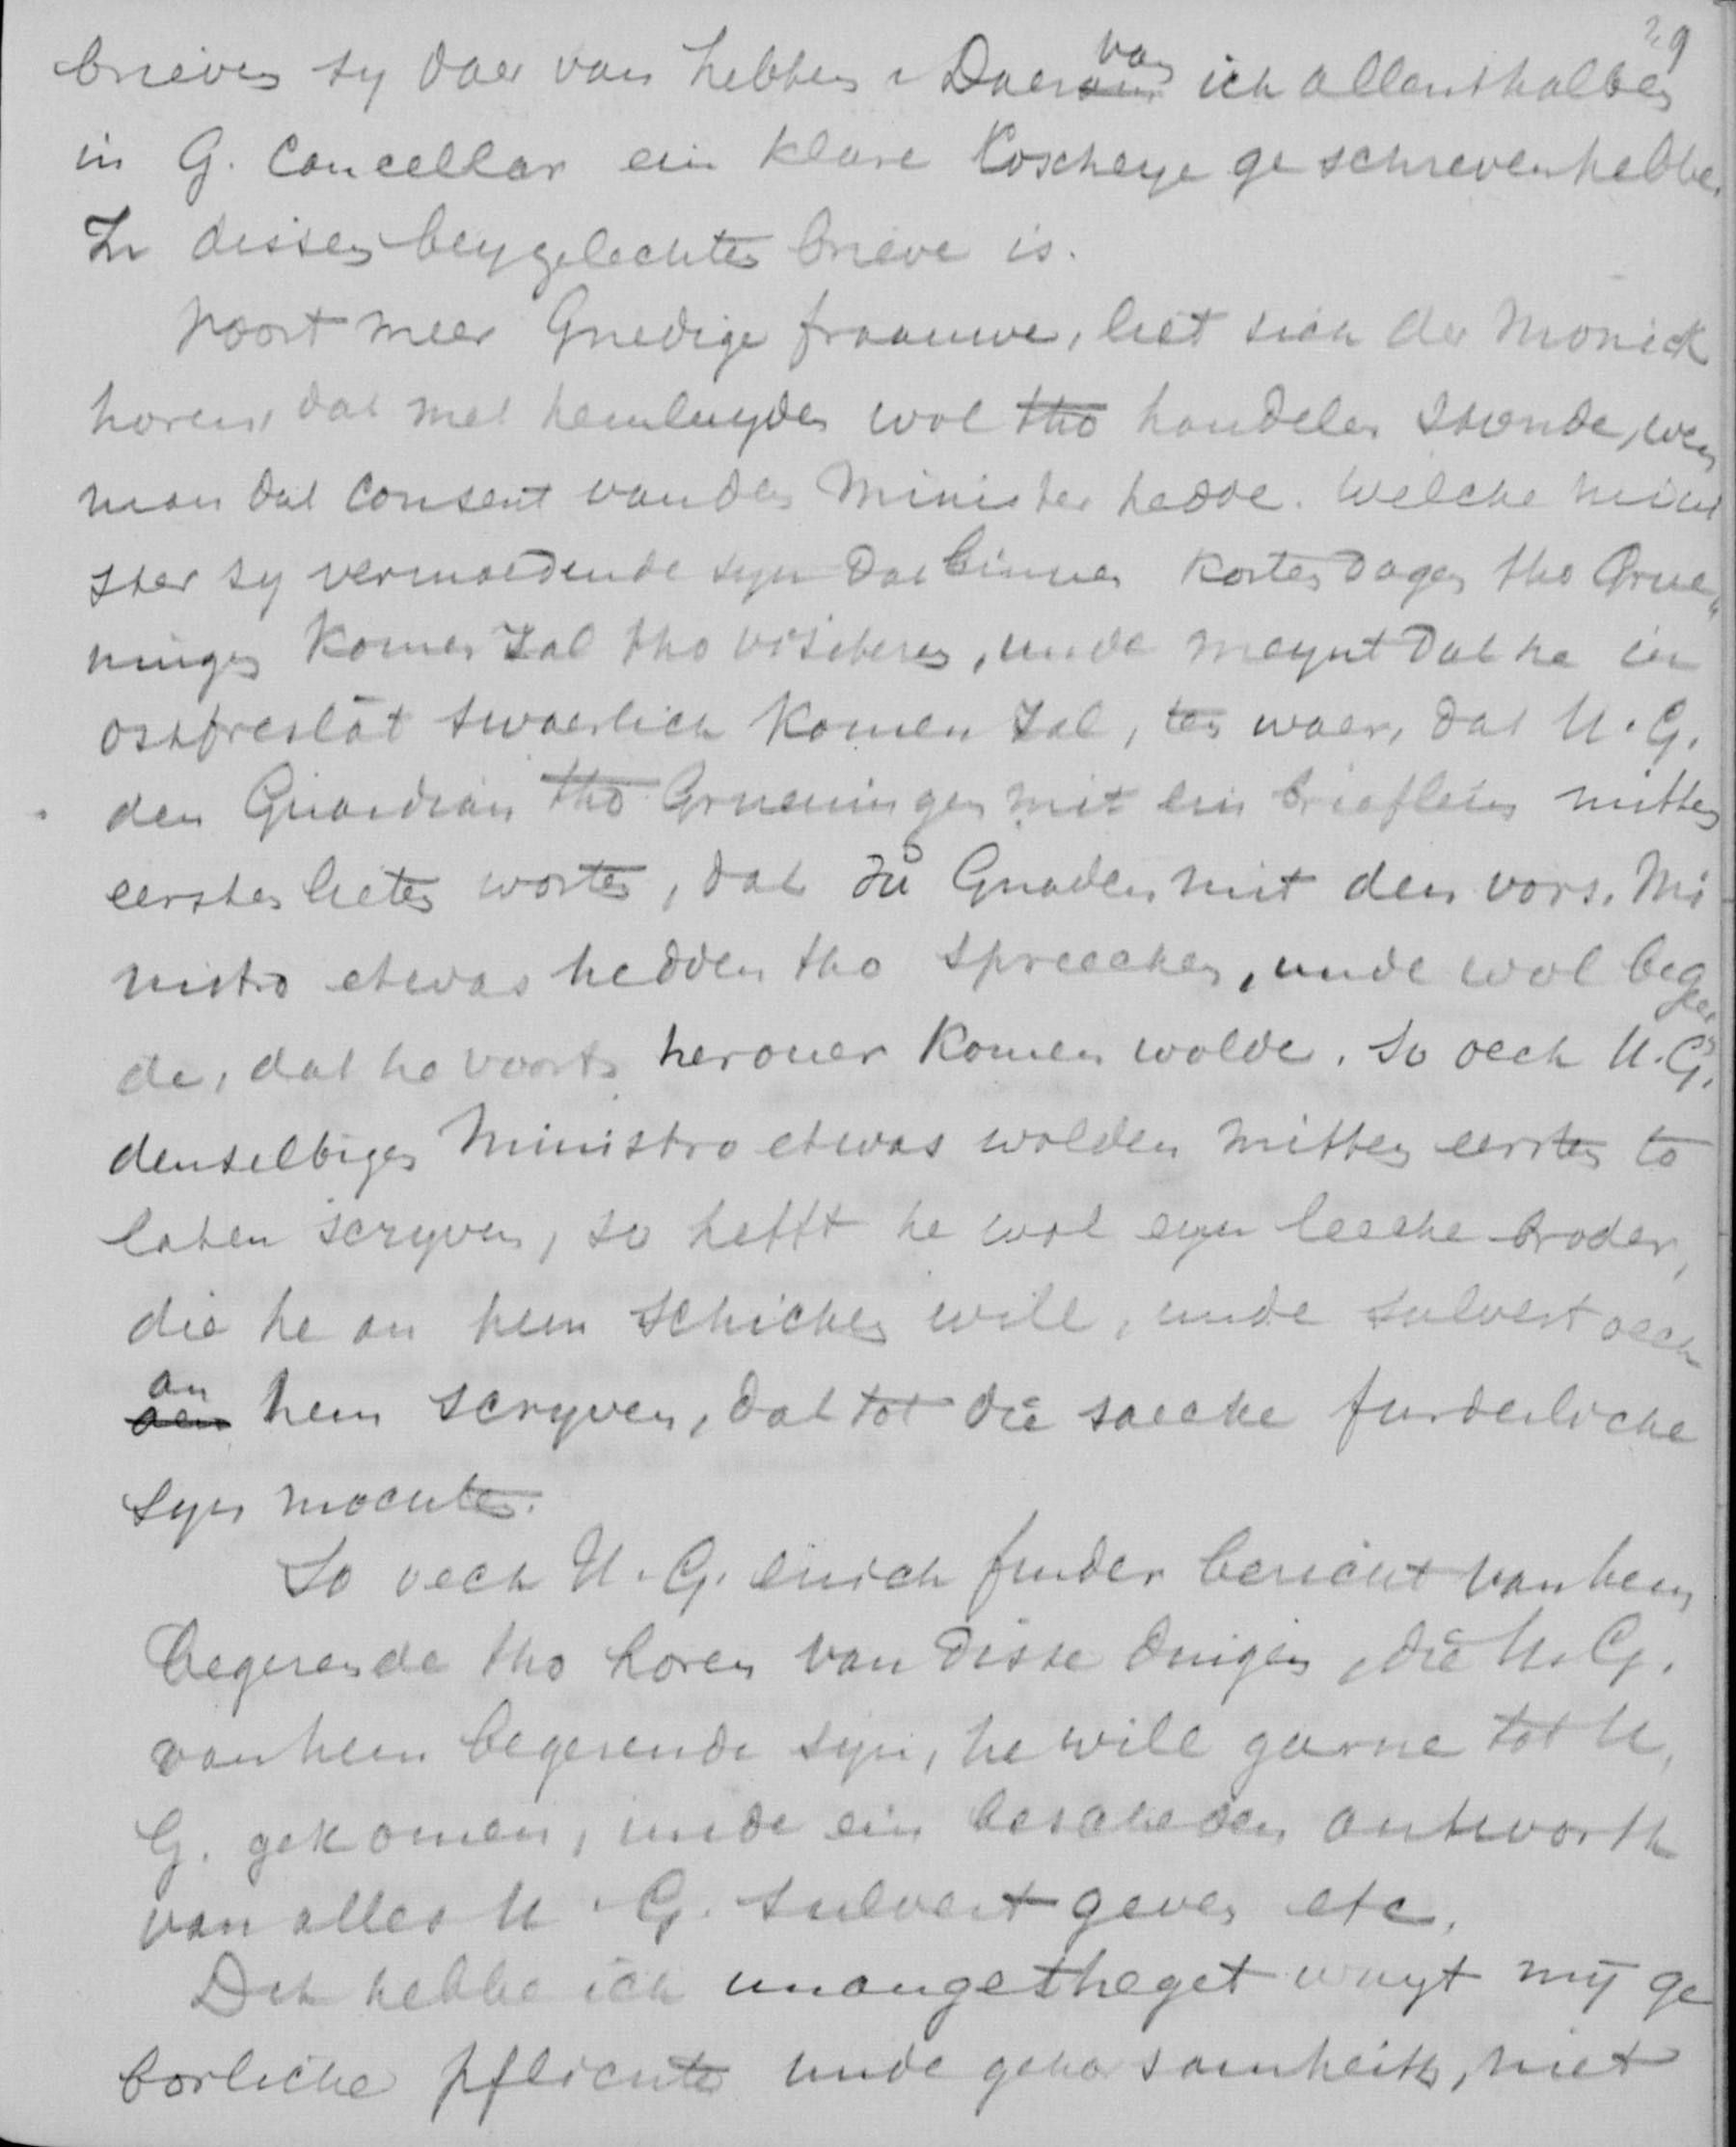 29
brieven sy daer van hebben. Daer van ich allenthalben
in G. Cancellar ein klare Coscheye geschreven hebbe.
In dissen beygelechten brieve is.
Voort meer Gnedige fraauwe, liet sich der Monick
horen, dat met hemluyden wol tho handelen stonde, wen
man dat consent van den Minister hedde. Welche mini
ster sy vermoedende syn dat binnen korten dagen tho Grue"
ningen komen zal tho visiteren, unde meynt dat he in
ostfreslāt swaerlich komen zal, ten waer, dat U. G.
den Guardian tho Grueningen mit ein brieflein mitten
eersten lieten worten, dat Zů Gnaden mit den vors. Mi
nistro etwas hedden tho spreecken, unde wol beger
de, dat he voorts herouer komen wolde. So oech U. G.
denselbigen Ministro etwas wolden mitten eersten to
laten scryven, so hefft he wol eyn leeche broder,
die he an hem schicken will, unde sulvest oech
an hem scryven, dat tot die saecke furderliche
syn mochte.
So oech U. G. enich furder bericht van hem
begerende tho horen van disse dingen, die U. G.
van hem begerende syn, he will garne tot U.
G. gekomen, unde ein bescheden antworth
van alles U. G. sulvest geven etc.
Dit hebbe ich unangetheget wuyt mÿ ge
borliche pflichte unde gehorsamheith, niet